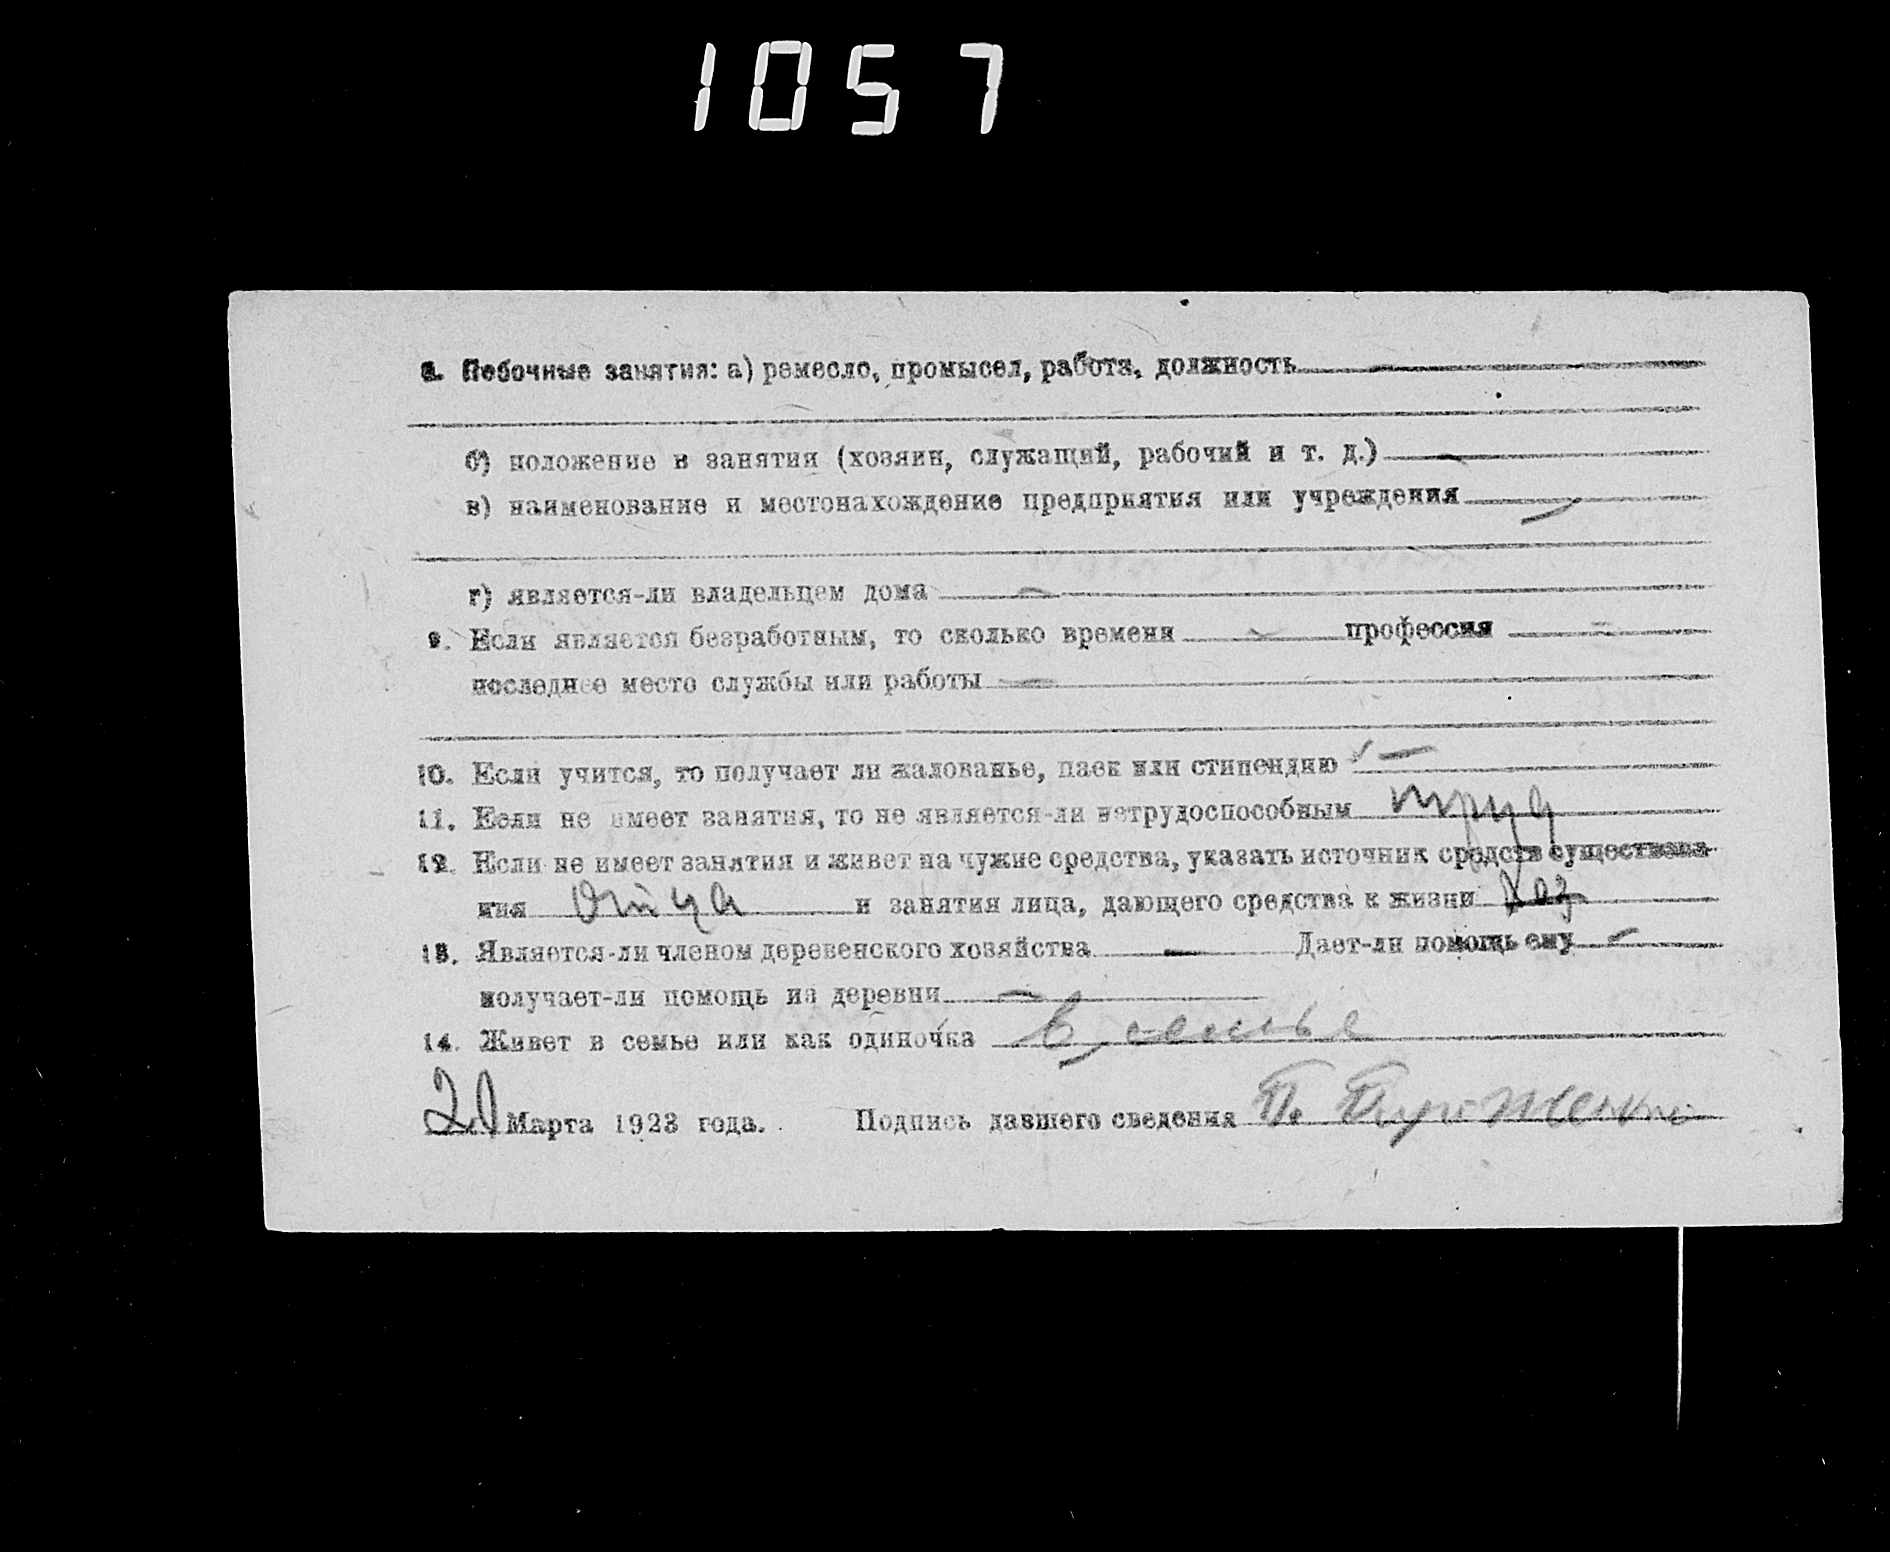 1057
8. Побочные занятия: а) ремесло, промысел, работа, должность —
б) положение в занятии (хозяин, служащий, рабочий и т. д.) —
в) наименование и местонахождение предприятия или учреждения —
г) является-ли владельцем дома —
9. Если является безработным, то сколько времени — профессия —
последнее место службы или работы —
10. Если учится, то получает ли жалованье, паек или стипендию —
11. Если не имеет занятия, то не является-ли нетрудоспособным труд
12. Если не имеет занятия и живет на чужие средства, указать источник средств существова-
ния отца и занятия лица, дающего средства к жизни хоз
13. Является-ли членом деревенского хозяйства — Дает-ли помощь ему —
получает-ли помощь из деревни —
14. Живет в семье или как одиночка в семье
20 Марта 1923 года. Подпись давшего сведения П.